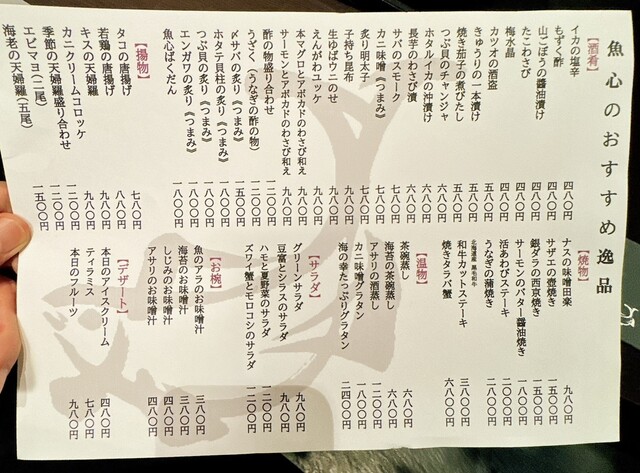 魚心のおすすめ逸品
【酒肴】
イカの塩辛 四八〇円
もずく酢 四八〇円
山ごぼうの醤油漬け 四八〇円
たこわさび 四八〇円
梅水晶 四八〇円
カツオの酒盗 五八〇円
きゅうりの一本漬け 五八〇円
焼き茄子の煮びたし 五八〇円
つぶ貝のチャンジャ 六八〇円
ホタルイカの沖漬け 六八〇円
長芋のわさび漬 六八〇円
サバのスモーク 七八〇円
カニ味噌《つまみ》 七八〇円
炙り明太子 七八〇円
子持ち昆布 九八〇円
生ゆばウニのせ 九八〇円
えんがわユッケ 九八〇円
本マグロとアボカドのわさび和え 九八〇円
サーモンとアボカドのわさび和え 九八〇円
酢の物盛り合わせ 一二〇〇円
うざく（うなぎの酢の物） 一二〇〇円
〆サバの炙り《つまみ》 一五〇〇円
ホタテ貝柱の炙り《つまみ》 一八〇〇円
つぶ貝の炙り《つまみ》 一八〇〇円
エンガワの炙り《つまみ》 一八〇〇円
魚心ばくだん 一八〇〇円
【揚物】
タコの唐揚げ 七八〇円
若鶏の唐揚げ 八八〇円
キスの天婦羅 九八〇円
カニクリームコロッケ 九八〇円
季節の天婦羅盛り合わせ 一二〇〇円
エビマヨ（二尾） 一二〇〇円
海老の天婦羅（五尾） 一五〇〇円
【焼物】
ナスの味噌田楽 九八〇円
サザエの壺焼き 一五〇〇円
銀ダラの西京焼き 一五〇〇円
サーモンのバター醤油焼き 一八〇〇円
活あわびステーキ 二〇〇〇円
うなぎの蒲焼き 二八〇〇円
北海道産 黒毛和牛
和牛カットステーキ 三八〇〇円
焼きタラバ蟹 六八〇〇円
【温物】
茶碗蒸し 六八〇円
海苔の茶碗蒸し 六八〇円
アサリの酒蒸し 一二〇〇円
カニ味噌グラタン 一八〇〇円
海の幸たっぷりグラタン 二四〇〇円
【サラダ】
グリーンサラダ 九八〇円
豆富とシラスのサラダ 九八〇円
ハモと夏野菜のサラダ 一二〇〇円
ズワイ蟹とモロコシのサラダ 一二〇〇円
【お椀】
魚のアラのお味噌汁 三八〇円
海苔のお味噌汁 三八〇円
しじみのお味噌汁 四八〇円
アサリのお味噌汁 四八〇円
【デザート】
本日のアイスクリーム 四八〇円
ティラミス 七八〇円
本日のフルーツ 九八〇円